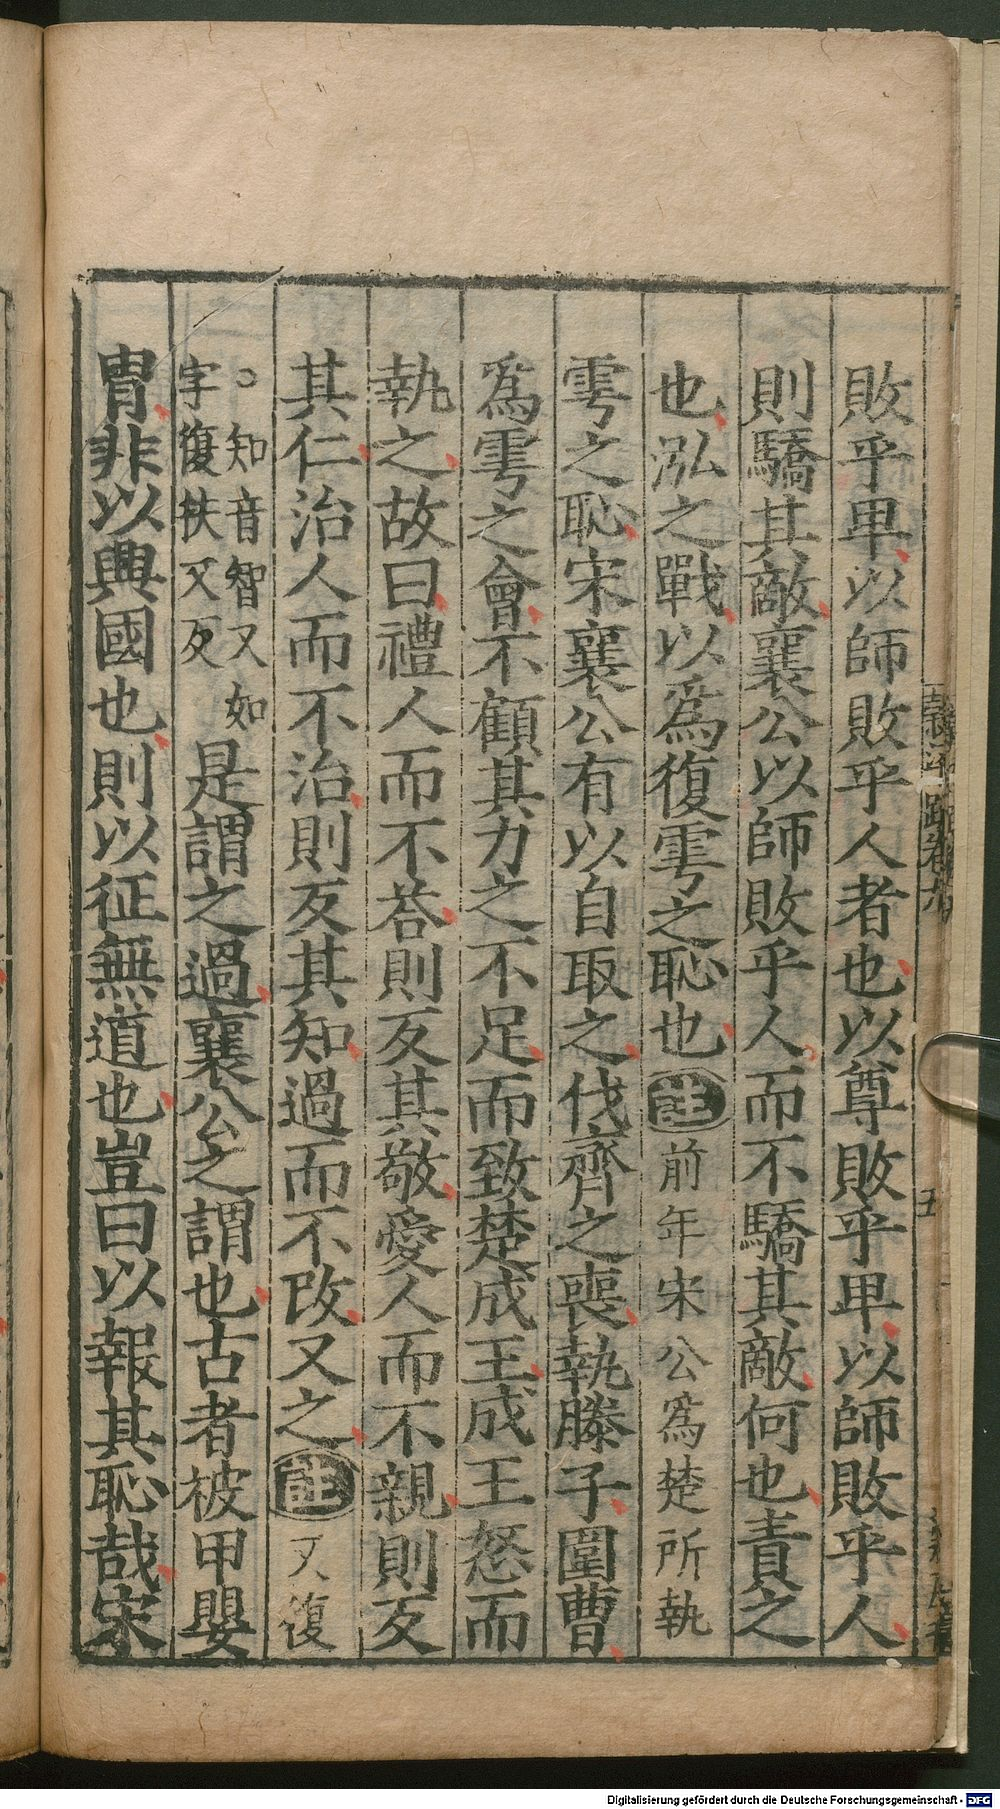 敗乎卑以師敗乎人者也以尊敗乎卑以師敗乎人
則驕其敵襄公以師敗乎人而不驕其敵何也責之
也泓之戰以爲復雩之恥也註前年宋公爲楚所執
雩之恥宋襄公有以自取之伐齊之喪執滕子圍曹
爲雩之會不顧其力之不足而致楚成王成王怒而
執之故曰禮人而不荅則反其敬愛人而不親則反
其仁治人而不治則反其知過而不改又之註又復
。知音智又如
字復扶又反
是謂之過襄公之謂也古者被甲嬰
胄非以興國也則以征無道也豈曰以報其恥哉宋
五
Digitalisierung gefördert durch die Deutsche Forschungsgemeinschaft - DFG